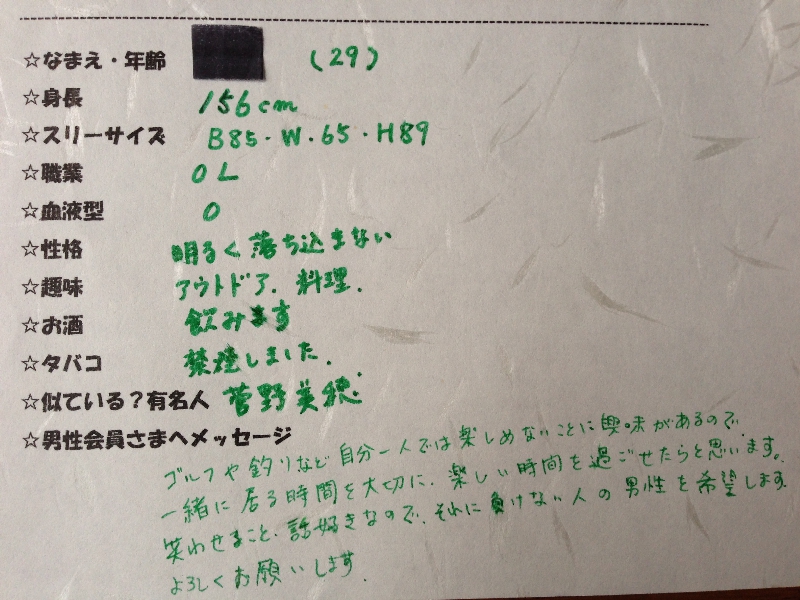 ☆なまえ・年齢 (29)
☆身長 156cm
☆スリーサイズ B85・W・65・H89
☆職業 OL
☆血液型 O
☆性格 明るく落ち込まない
☆趣味 アウトドア、料理.
☆お酒 飲みます
☆タバコ 禁煙しました.
☆似ている?有名人 菅野美穂
☆男性会員さまへメッセージ
ゴルフや釣りなど自分一人では楽しめないことに興味があるので、
一緒に居る時間を大切に、楽しい時間を過ごせたらと思います。
笑わせること、話好きなので、それに負けない人の男性を希望します
よろしくお願いします.